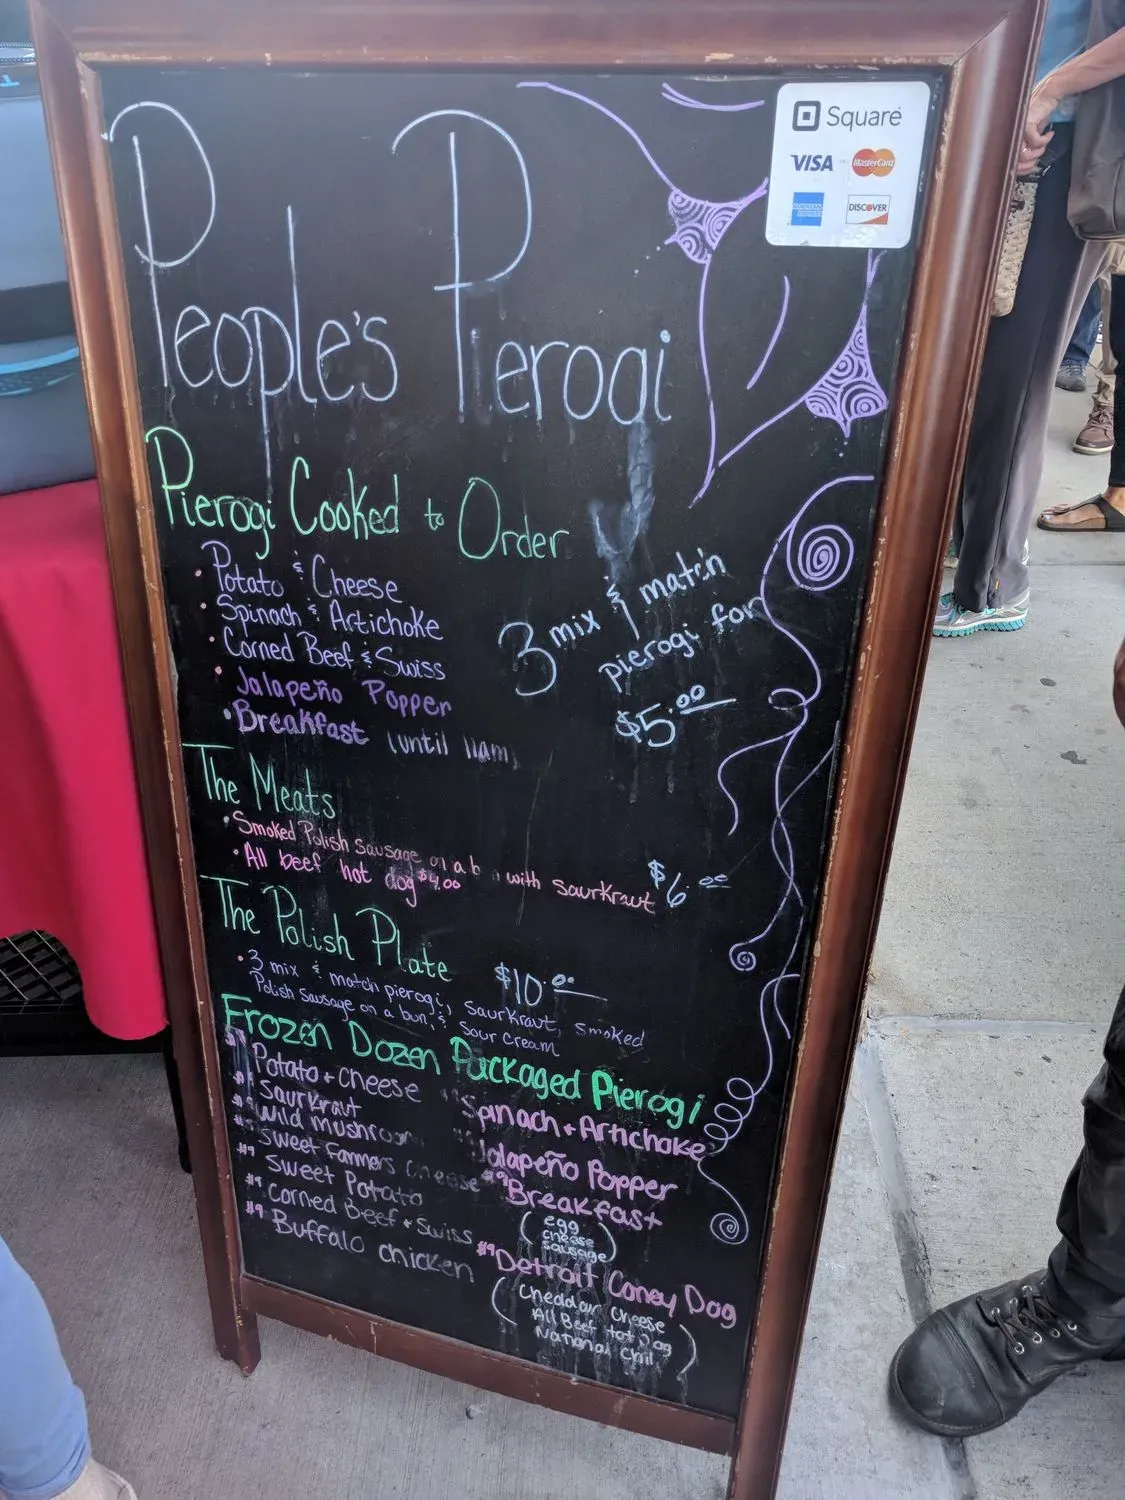 Square
VISA MasterCard
AMERICAN EXPRESS DISCOVER
People's Pierogi
Pierogi Cooked to Order
• Potato & Cheese
• Spinach & Artichoke
• Corned Beef & Swiss
• Jalapeño Popper
• Breakfast (until 11am)
3 mix & match
pierogi for
$5.00
The Meats
• Smoked Polish sausage on a b n with saurkraut $6.00
• All beef hot dog $4.00
The Polish Plate $10.00
• 3 mix & match pierogi, saurkraut, smoked
Polish sausage on a bun, & sour cream
Frozen Dozen Packaged Pierogi
Potato + cheese
Saurkraut
Wild mushroom
Sweet Farmers Cheese
$9 Sweet Potato
$9 Corned Beef + Swiss
$9 Buffalo chicken
Spinach + Artichoke
Jalapeño Popper
$9 Breakfast
(egg
cheese
sausage)
$9 Detroit Coney Dog
(Cheddar cheese
All Beef Hot Dog
National Chili)